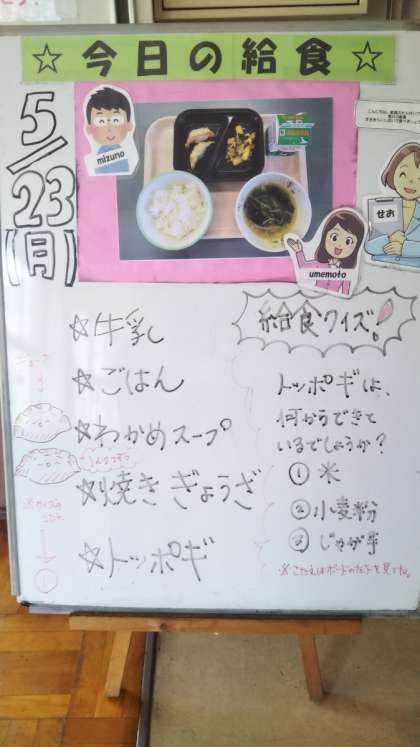 ☆今日の給食☆
5/23(月)
mizuno
umemoto
せお
☆牛乳
☆ごはん
☆わかめスープ
☆焼きぎょうざ
☆トッポギ
給食クイズ!
トッポギは、
何からできて
いるでしょうか?
① 米
② 小麦粉
③ じゃが芋
※こたえはボードの左下を見てね。
※クイズの
こたえ
↓
①